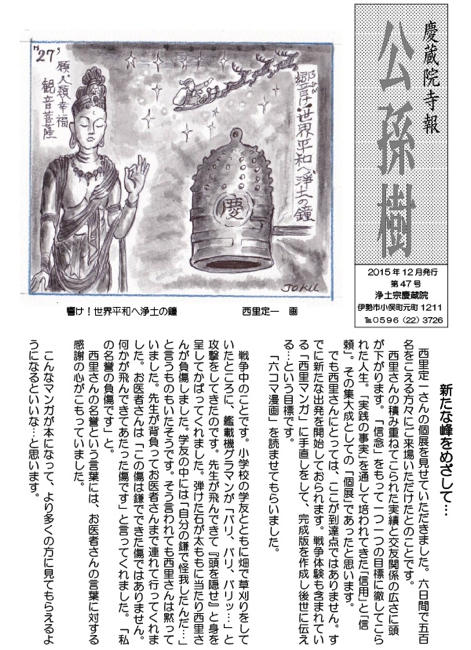 慶蔵院寺報
公孫樹
2015年12月発行
第47号
浄土宗慶蔵院
伊勢市小俣町元町1211
℡0596(22)3726
H27'
願人類幸福
観音菩薩
響け!世界平和へ浄土の鐘
慶
JOKU
響け!世界平和へ浄土の鐘 西里定一 画
新たな峰をめざして…
西里定一さんの個展を見せていただきました。六日間で五百
名をこえる方々にご来場いただけたとのことです。
西里さんの積み重ねてこられた実績と交友関係の広さに頭
が下がります。「信念」をもって一つ一つの目標に徹してこら
れた人生。「実践の事実」を通して培われてきた「信用」と「信
頼」。その集大成としての「個展」であったと思います。
でも西里さんにとっては、ここが到達点ではありません。す
でに新たな出発を開始しておられます。戦争体験も含まれてい
る「西里マンガ」に手直しをして、完成版を作成し後世に伝え
る…という目標です。
「六コマ漫画」を読ませてもらいました。
戦争中のことです。小学校の学友とともに畑で草刈りをして
いたところに、艦載機グラマンが「バリ、バリ、バリッ…」と
攻撃をしてきたのです。先生が飛んできて『頭を隠せ』と身を
呈してかばってくれました。弾けた石が太ももに当たり西里さ
んが負傷しました。学友の中には「自分の鎌で怪我したんだ…」
と言うものもいたそうです。そう言われても西里さんは黙って
いました。先生が背負ってお医者さまで連れて行ってくれま
した。お医者さんは「この傷は鎌でできた傷ではありません。
何かが飛んできてあたった傷です」と言ってくれました。「私
の名誉の負傷です」と。
西里さんの名誉という言葉には、お医者さんの言葉に対する
感謝の心がこもっていました。
こんなマンガが本になって、より多くの方に見てもらえるよ
うになるといいな…と思います。